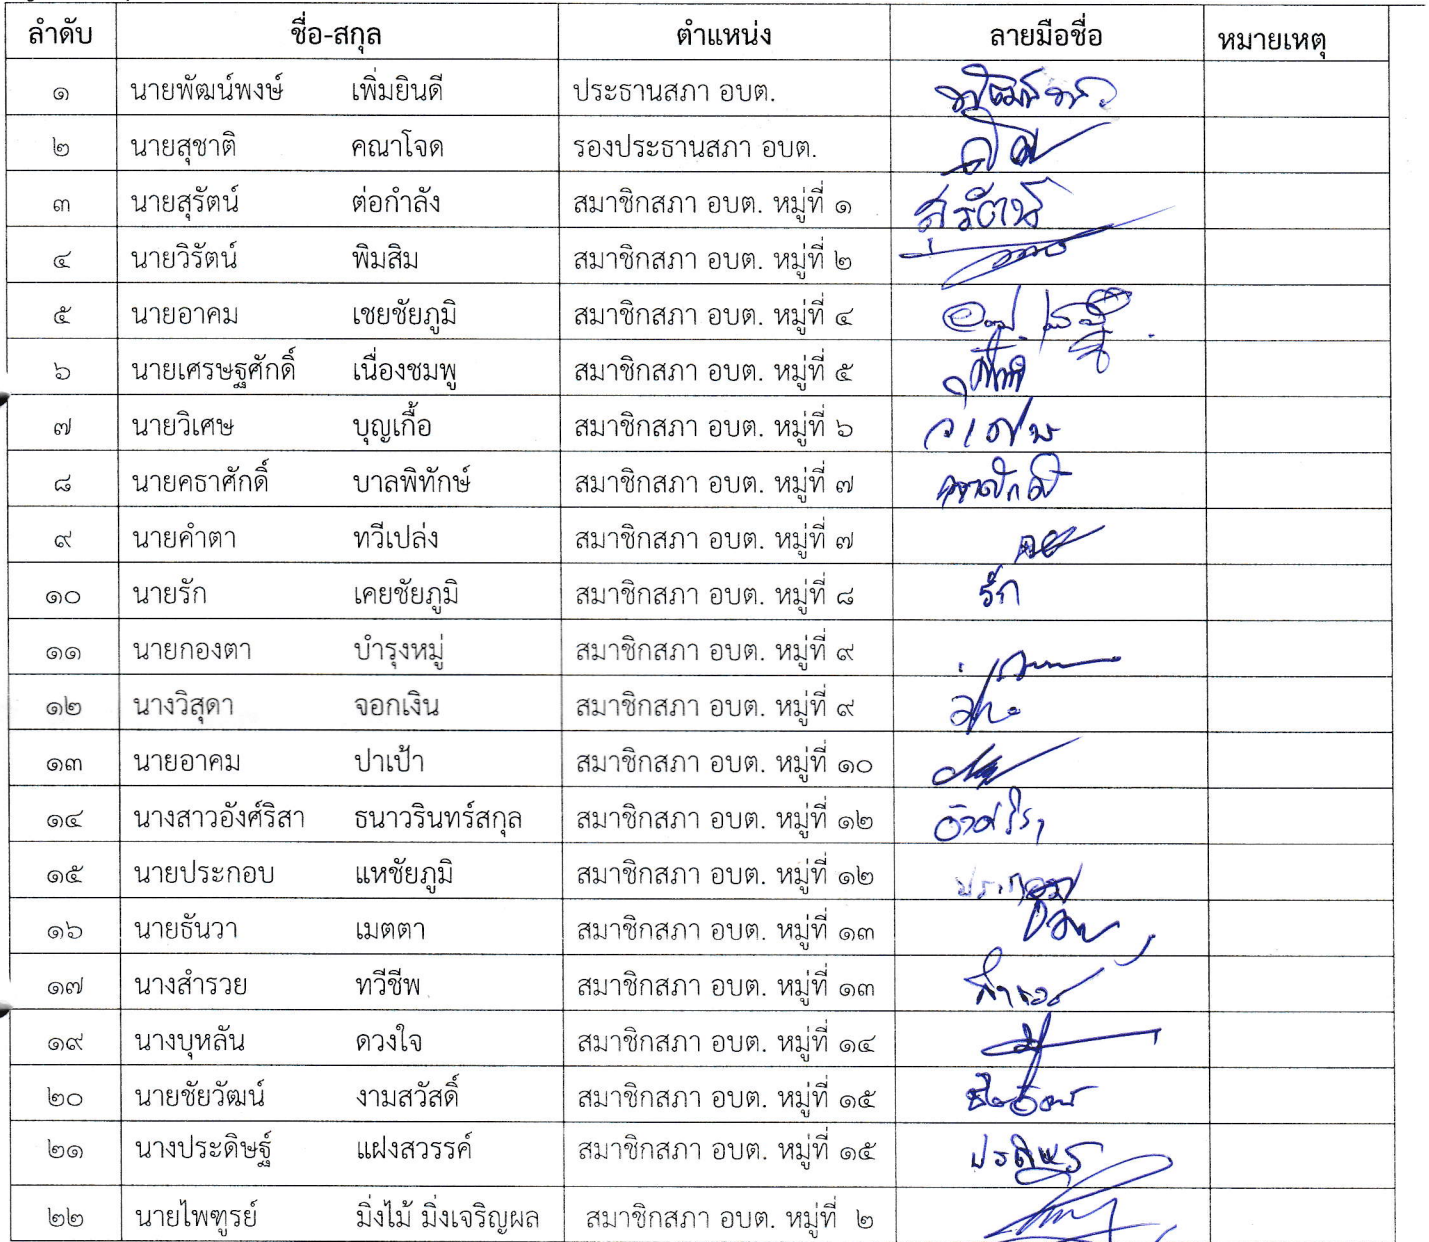 ลำดับ ชื่อ-สกุล ตำแหน่ง ลายมือชื่อ หมายเหตุ
๑ นายพัฒน์พงษ์ เพิ่มยินดี ประธานสภา อบต.
๒ นายสุชาติ คณาโจด รองประธานสภา อบต.
๓ นายสุรัตน์ ต่อกำลัง สมาชิกสภา อบต. หมู่ที่ ๑ สุรัตน์
๔ นายวิรัตน์ พิมสิม สมาชิกสภา อบต. หมู่ที่ ๒
๕ นายอาคม เชยชัยภูมิ สมาชิกสภา อบต. หมู่ที่ ๔
๖ นายเศรษฐศักดิ์ เนื่องชมพู สมาชิกสภา อบต. หมู่ที่ ๕
๗ นายวิเศษ บุญเกื้อ สมาชิกสภา อบต. หมู่ที่ ๖ วิเศษ
๘ นายคธาศักดิ์ บาลพิทักษ์ สมาชิกสภา อบต. หมู่ที่ ๗
๙ นายคำตา ทวีเปล่ง สมาชิกสภา อบต. หมู่ที่ ๗
๑๐ นายรัก เคยชัยภูมิ สมาชิกสภา อบต. หมู่ที่ ๘ รัก
๑๑ นายกองตา บำรุงหมู่ สมาชิกสภา อบต. หมู่ที่ ๙
๑๒ นางวิสุดา จอกเงิน สมาชิกสภา อบต. หมู่ที่ ๙
๑๓ นายอาคม ปาเป้า สมาชิกสภา อบต. หมู่ที่ ๑๐
๑๔ นางสาวอังศ์ริสา ธนาวรินทร์สกุล สมาชิกสภา อบต. หมู่ที่ ๑๒
๑๕ นายประกอบ แหชัยภูมิ สมาชิกสภา อบต. หมู่ที่ ๑๒ ประกอบ
๑๖ นายธันวา เมตตา สมาชิกสภา อบต. หมู่ที่ ๑๓
๑๗ นางสำรวย ทวีชีพ สมาชิกสภา อบต. หมู่ที่ ๑๓
๑๙ นางบุหลัน ดวงใจ สมาชิกสภา อบต. หมู่ที่ ๑๔
๒๐ นายชัยวัฒน์ งามสวัสดิ์ สมาชิกสภา อบต. หมู่ที่ ๑๕
๒๑ นางประดิษฐ์ แฝงสวรรค์ สมาชิกสภา อบต. หมู่ที่ ๑๕
๒๒ นายไพฑูรย์ มิ่งไม้ มิ่งเจริญผล สมาชิกสภา อบต. หมู่ที่ ๒